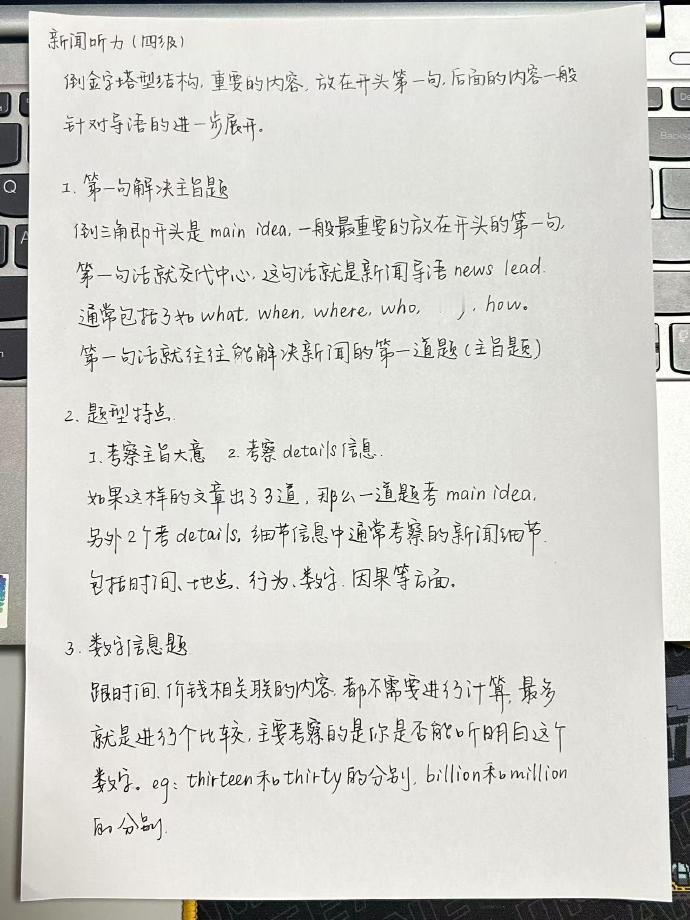 新闻听力(四级)
倒金字塔型结构,重要的内容,放在开头第一句,后面的内容一般
针对导语的进一步展开。
1. 第一句解决主旨题
倒三角即开头是 main idea, 一般最重要的放在开头的第一句,
第一句话就交代中心,这句话就是新闻导语 news lead.
通常包括了如 what, when, where, who, ), how。
第一句话就往往能解决新闻的第一道题(主旨题)
2. 题型特点.
1. 考察主旨大意 2. 考察 details 信息.
如果这样的文章出了3道,那么一道题考 main idea,
另外2个考 details, 细节信息中通常考察的新闻细节
包括时间、地点、行为、数字、因果等方面。
3. 数字信息题
跟时间、价钱相关联的内容,都不需要进行计算,最多
就是进行个比较,主要考察的是你是否能听明白这个
数字。eg: thirteen和thirty的分别, billion和million
的分别.
Q
Backspace